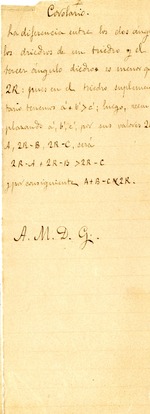 Corolario.
La diferencia entre los dos angu
los diedros de un triedro y el
tercer ángulo diedro es menor q
2R: pues en el triedro suplemen
tario tenemos a'+b'>c'; luego, reem
plazando a', b', c', por sus valores 2
A, 2R-B, 2R-C, será
2R-A+2R-B>2R-C
y por consiguiente A+B-C<2R.
A. M. D. G.